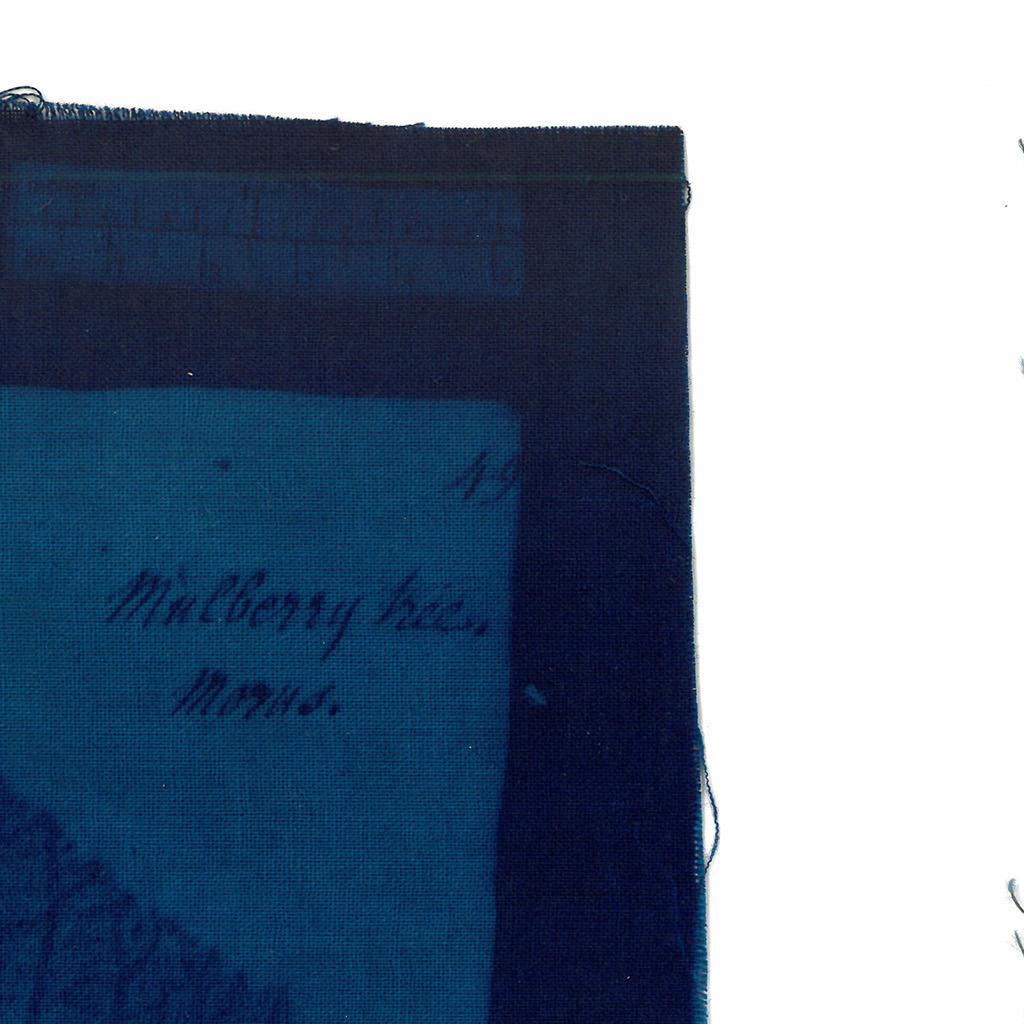 49
Mulberry tree.
Morus.